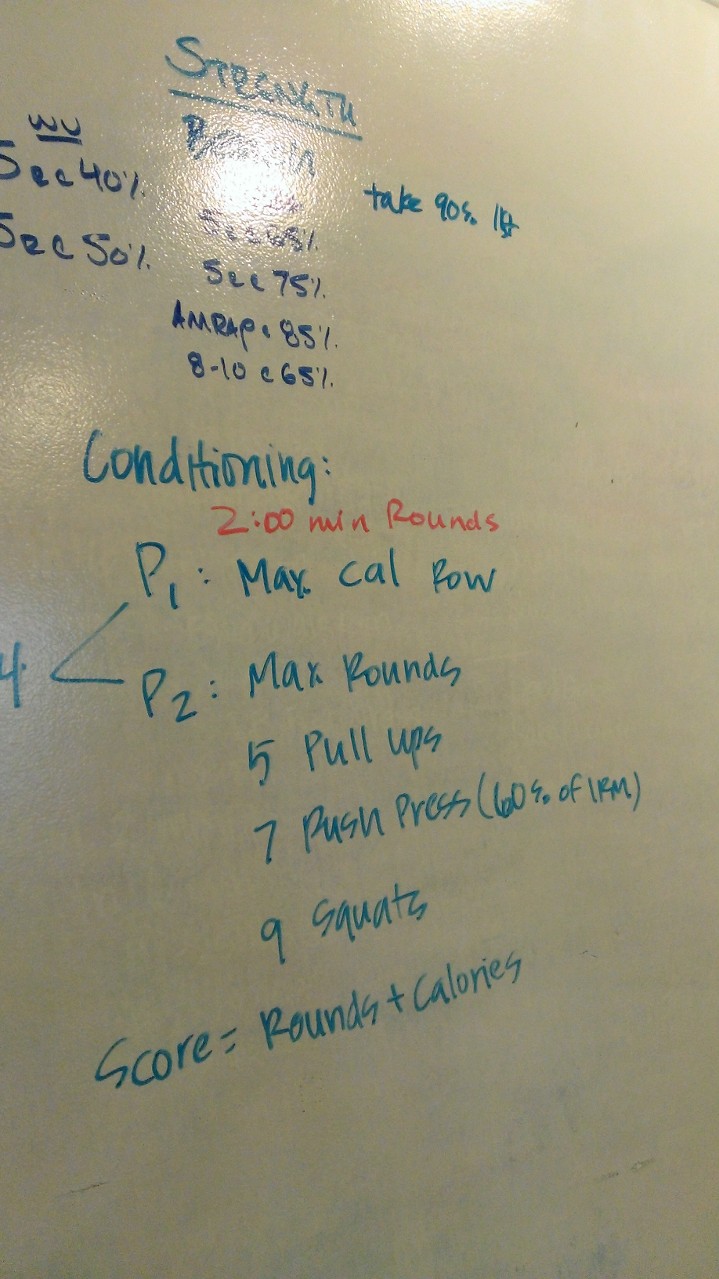 STRENGTH
BENCH
WU
5 @ 40%
5 @ 50%
take 90% 1st
5 @ 65%
5 @ 75%
AMRAP @ 85%
8-10 @ 65%
Conditioning:
2:00 min Rounds
P1: Max Cal Row
4
P2: Max Rounds
5 Pull ups
7 Push Press (60% of 1RM)
9 Squats
Score = Rounds + Calories